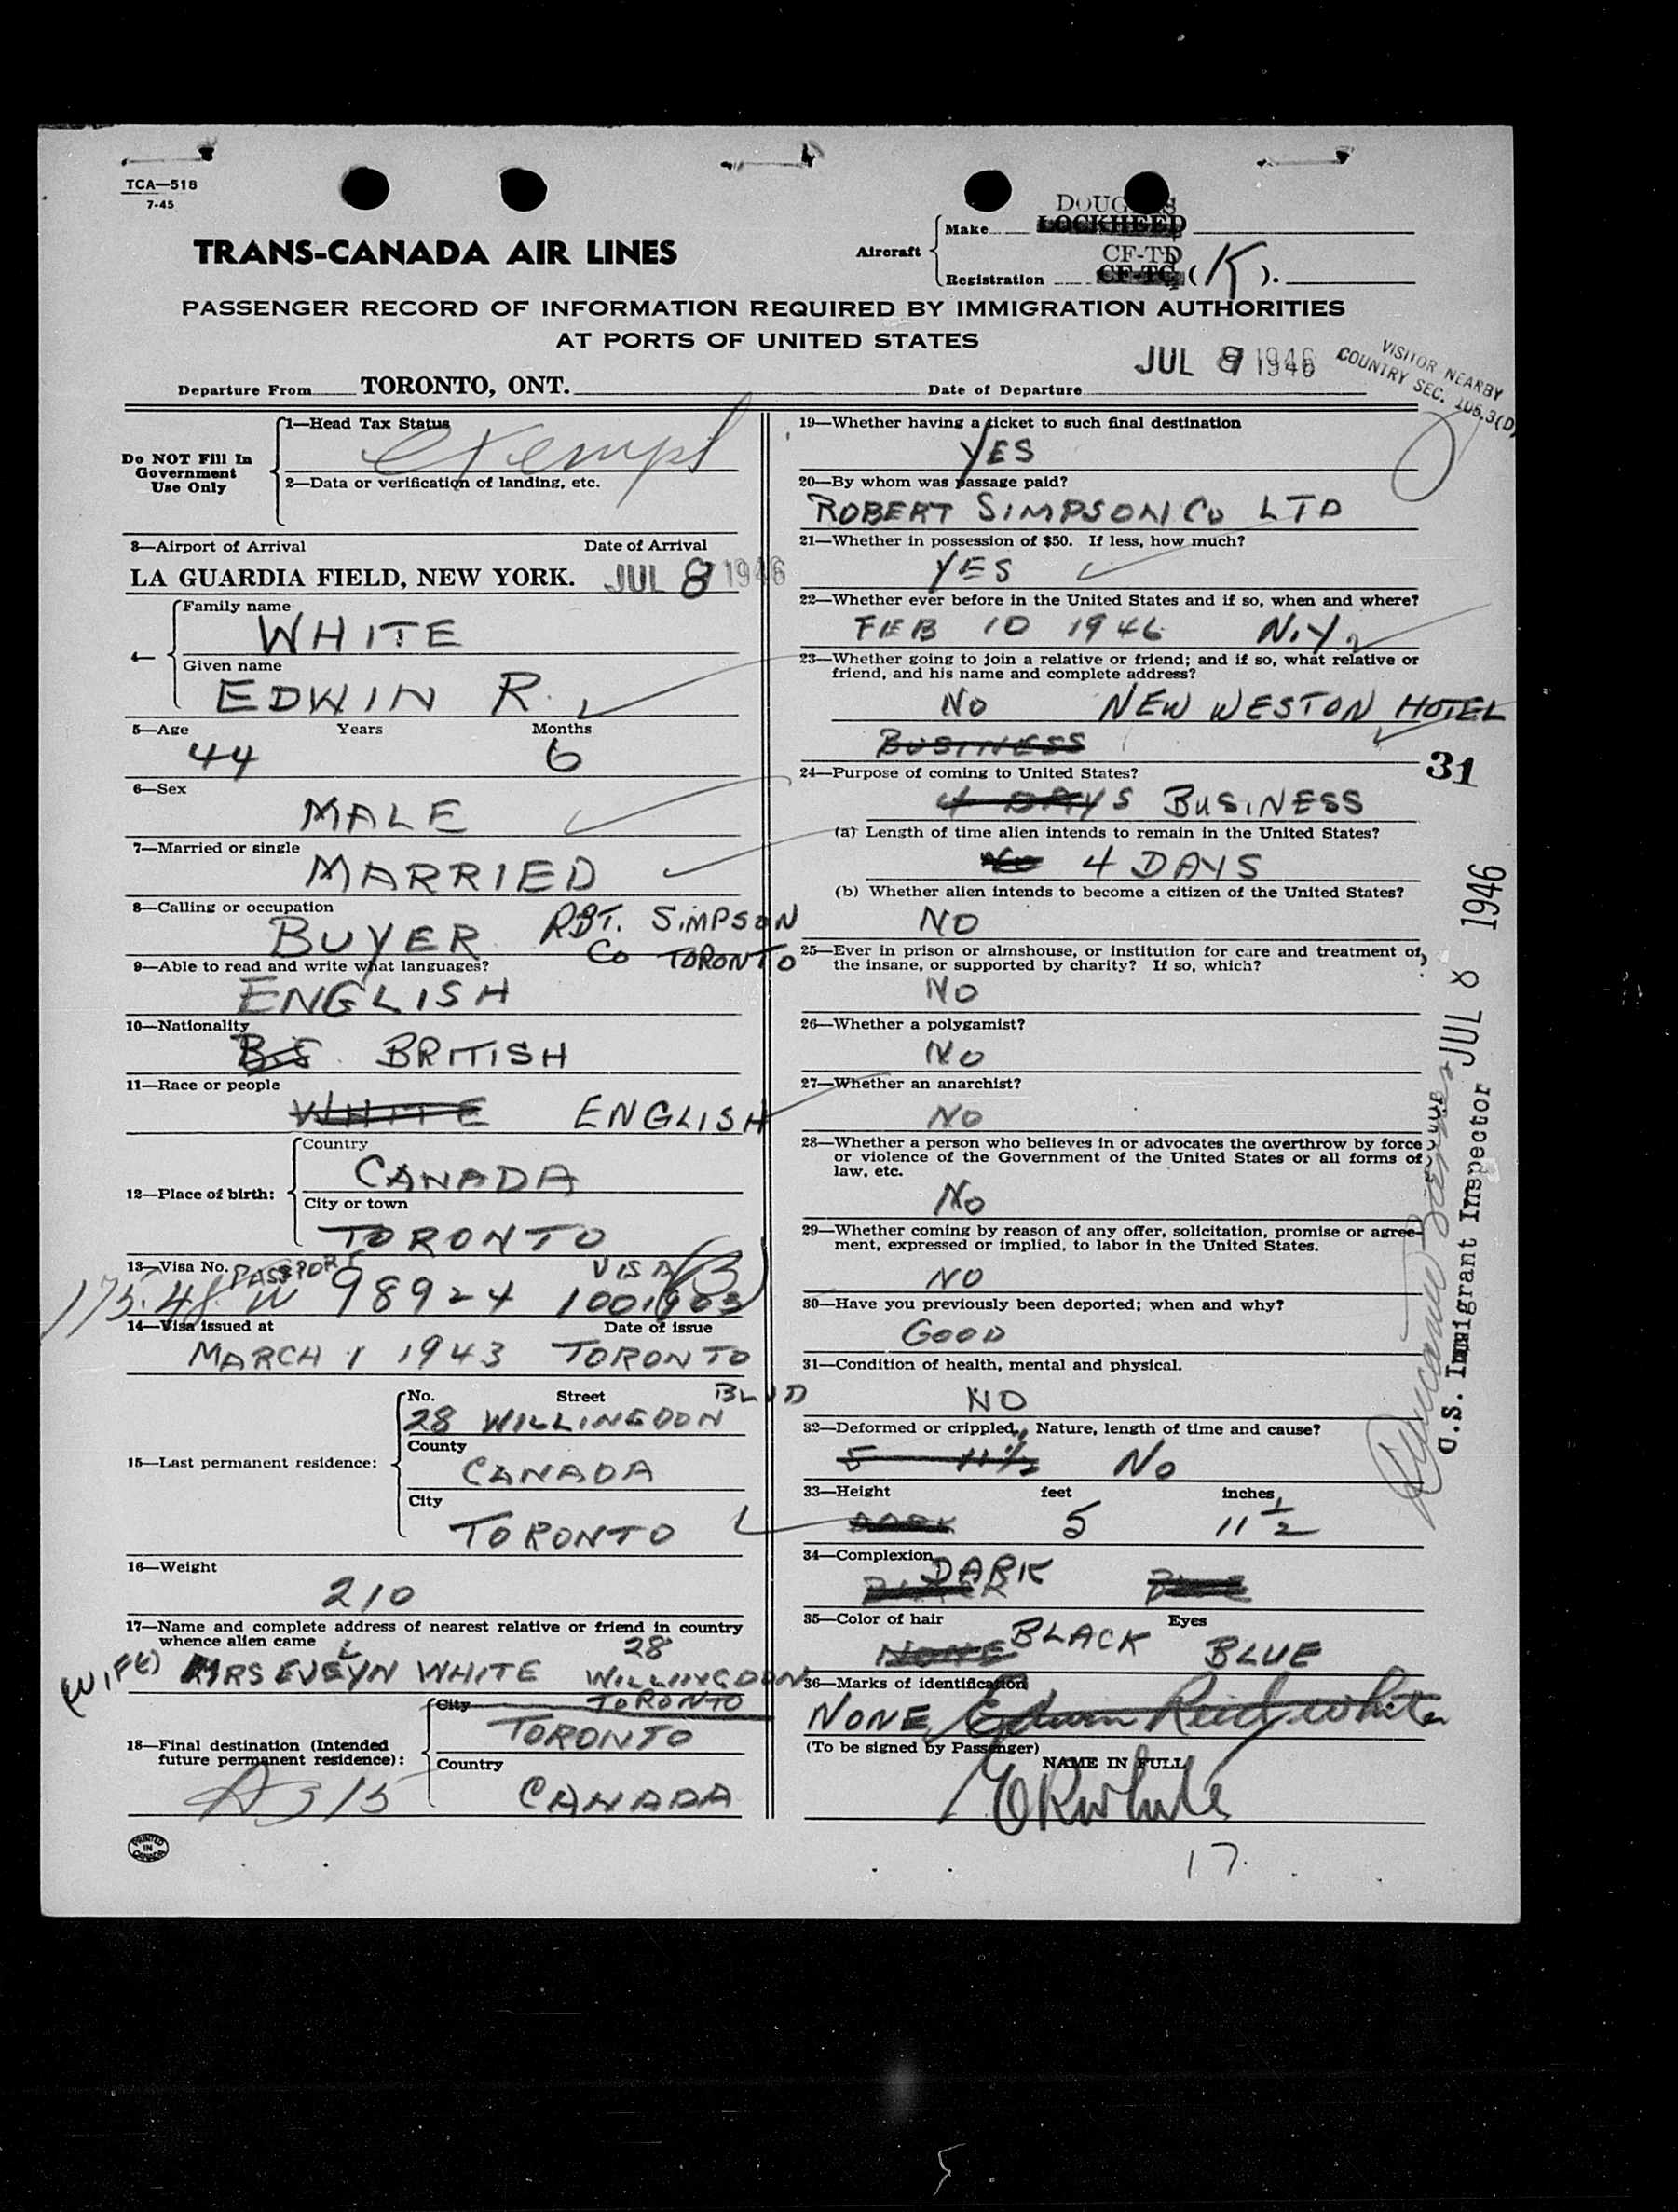 TCA—518
7-45
TRANS-CANADA AIR LINES
Aircraft
Make
DOUGLAS
LOCKHEED
Registration
CF-TD
CF-TC ( K ).
PASSENGER RECORD OF INFORMATION REQUIRED BY IMMIGRATION AUTHORITIES
AT PORTS OF UNITED STATES
Departure From TORONTO, ONT.
Date of Departure JUL 8 1946
VISITOR NEARBY
COUNTRY SEC. 105.3(D)
Do NOT Fill In
Government
Use Only
1—Head Tax Status
exempt
2—Data or verification of landing, etc.
3—Airport of Arrival Date of Arrival
LA GUARDIA FIELD, NEW YORK. JUL 8 1946
4— Family name
WHITE
Given name
EDWIN R.
5—Age Years Months
44 6
6—Sex
MALE
7—Married or single
MARRIED
8—Calling or occupation
BUYER RBT. SIMPSON
CO TORONTO
9—Able to read and write what languages?
ENGLISH
10—Nationality
B.S. BRITISH
11—Race or people
WHITE ENGLISH
12—Place of birth:
Country
CANADA
City or town
TORONTO
13—Visa No. PASSPORT VISA
175.48 W 98924 1001903
14—Visa issued at Date of issue
MARCH 1 1943 TORONTO
15—Last permanent residence:
No. Street BLVD
28 WILLINGDON
County
CANADA
City
TORONTO
16—Weight
210
17—Name and complete address of nearest relative or friend in country
whence alien came
28
(WIFE) MRS EVELYN WHITE WILLINGDON
TORONTO
18—Final destination (Intended
future permanent residence):
City
TORONTO
Country
CANADA
PRINTED
IN
CANADA
19—Whether having a ticket to such final destination
YES
20—By whom was passage paid?
ROBERT SIMPSON CO LTD
21—Whether in possession of $50. If less, how much?
YES
22—Whether ever before in the United States and if so, when and where?
FEB 10 1946 N.Y.
23—Whether going to join a relative or friend; and if so, what relative or
friend, and his name and complete address?
NO NEW WESTON HOTEL
BUSINESS
31
24—Purpose of coming to United States?
4 DAYS BUSINESS
(a) Length of time alien intends to remain in the United States?
NO 4 DAYS
(b) Whether alien intends to become a citizen of the United States?
NO
25—Ever in prison or almshouse, or institution for care and treatment of,
the insane, or supported by charity? If so, which?
NO
26—Whether a polygamist?
NO
27—Whether an anarchist?
NO
28—Whether a person who believes in or advocates the overthrow by force
or violence of the Government of the United States or all forms of
law, etc.
NO
29—Whether coming by reason of any offer, solicitation, promise or agree-
ment, expressed or implied, to labor in the United States.
NO
30—Have you previously been deported; when and why?
GOOD
31—Condition of health, mental and physical.
NO
32—Deformed or crippled. Nature, length of time and cause?
5 11½ NO
33—Height feet inches
DARK 5 11½
34—Complexion
DARK
35—Color of hair Eyes
NONE BLACK BLUE
36—Marks of identification
NONE Edwin Reid White
(To be signed by Passenger)
NAME IN FULL
E R White
17.
U.S. Immigrant Inspector JUL 8 1946